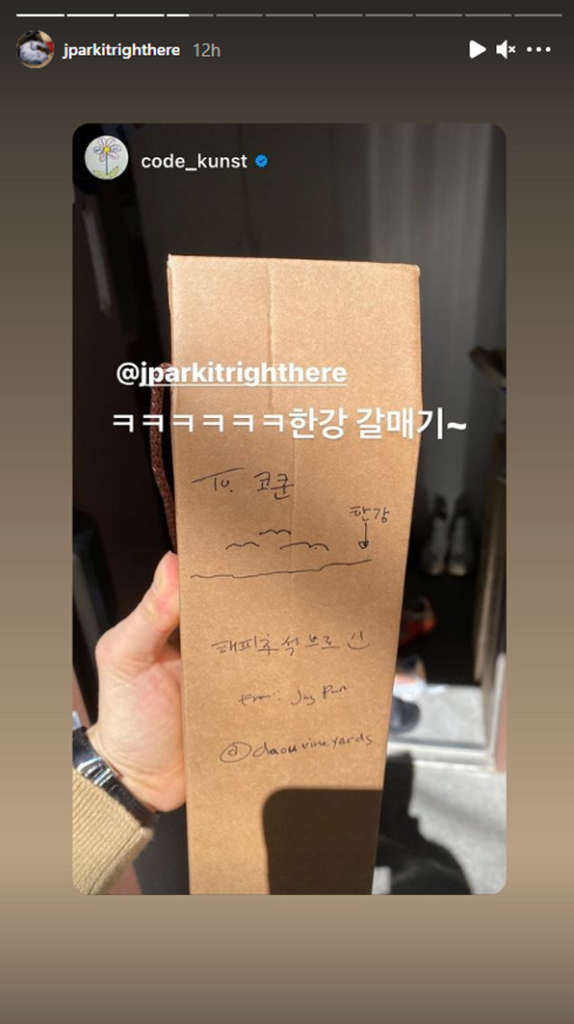 jparkitrighthere 12h
code_kunst
@jparkitrighthere
ㅋㅋㅋㅋㅋㅋ한강 갈매기~
To. 코쿤
한강
해피추석브로
from: Jay Park
@daouvineyards